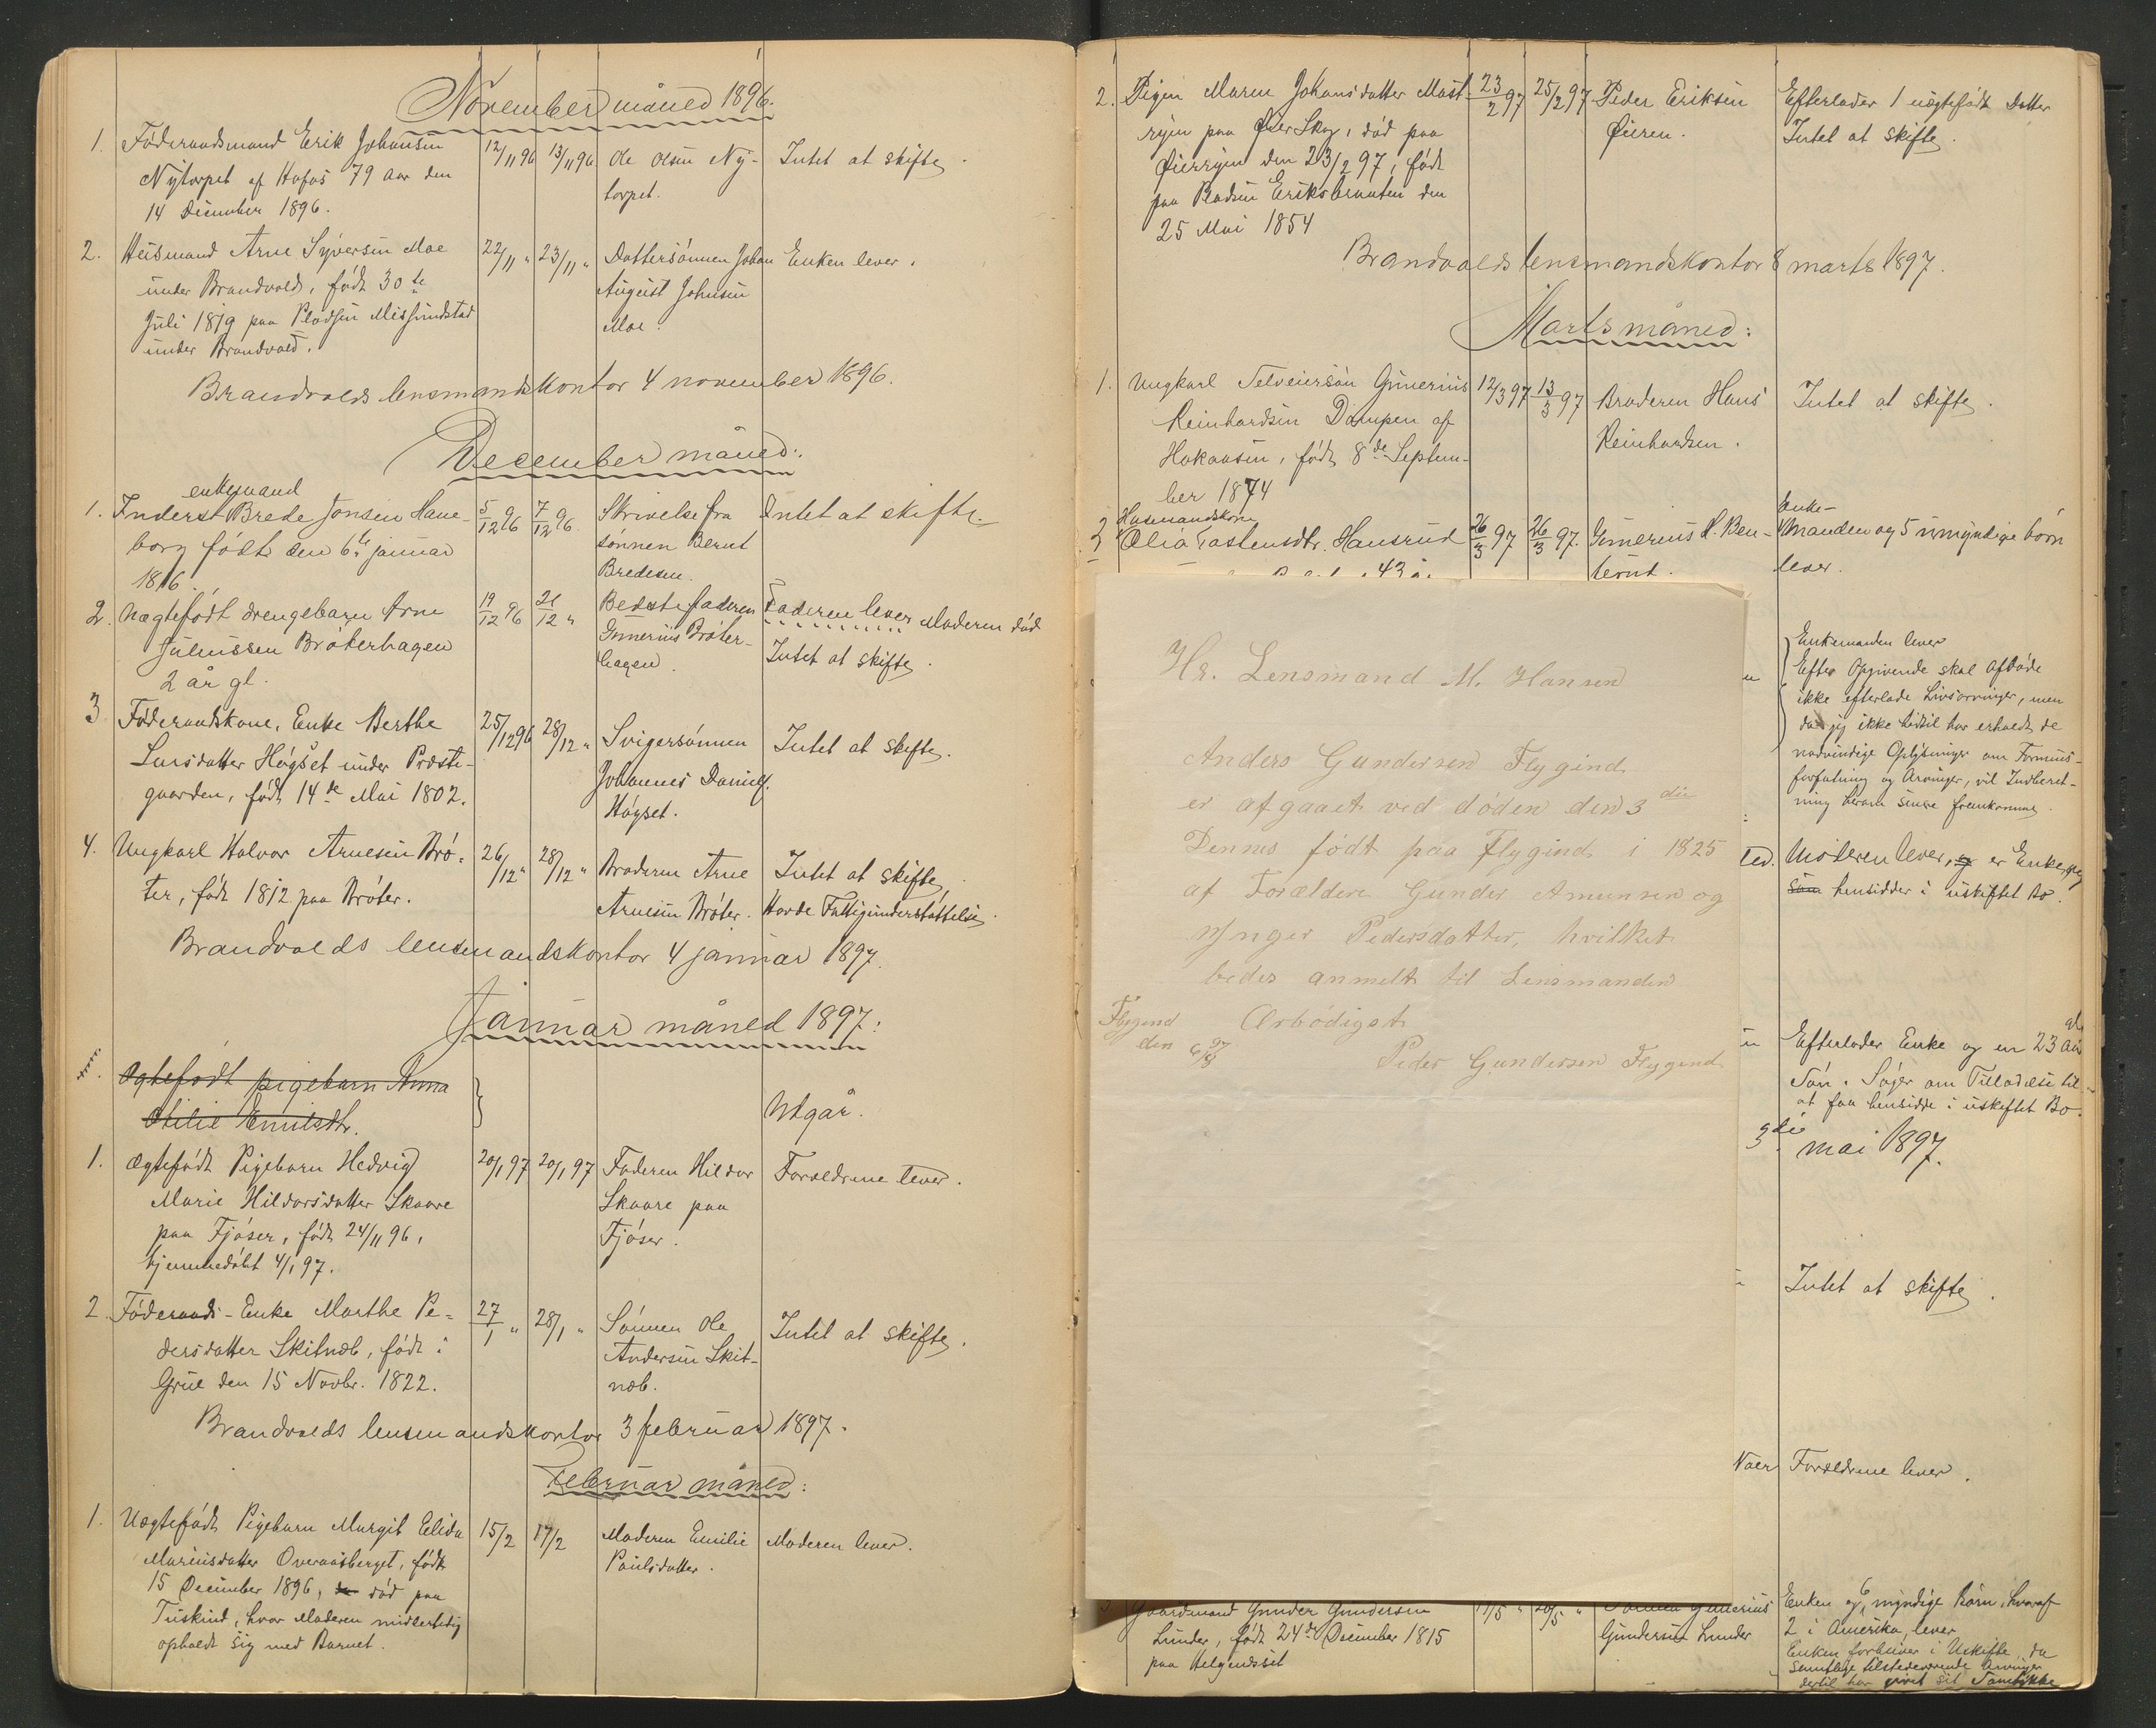 November måned 1896.
1. Föderaadsmand Erik Johansen 12/11 96 13/11 96 Ole Olsen Ny- Intet at skifte.
Nytorpet af Hofos 79 Aar den torpet.
14 December 1896.
2. Husmand Arne Syversen Moe 22/11 " 23/11 " Dattersönnen Johan Enken lever.
under Brandvold, födt 30te August Johnsen
Juli 1819 paa Pladsen Missundstad Moe.
under Brandvold.
Brandvolds lensmandskontor 4 november 1896.
December måned:
enkemand
1. Inderst Brede Jonsen Hane- 5/12 96 7/12 96 Skrivelse fra Intet at skifte.
borg födt den 6te januar sönnen Bernt
1816. Bredesen.
2. Uægtefödt drengebarn Arne 19/12 96 21/12 " Bedstefaderen Faderen lever Moderen död
Juliussen Bröterhagen Gunerius Bröter- Intet at skifte.
2 år gl. hagen.
3 Föderaadskone, Enke Berthe 25/12 96 28/12 " Svigersönnen Intet at skifte.
Larsdatter Högset under Præste- Johannes Daniels.
gaarden, födt 14de Mai 1802. Högset.
4. Ungkarl Halvor Arnesen Brö- 26/12 " 28/12 " Broderen Arne Intet at skifte,
ter, födt 1812 paa Bröter. Arnesen Bröter. Havde Fattigunderstöttelse.
Brandvolds lensmandskontor 4 januar 1897.
Januar måned 1897:
Ægtefödt pigebarn Anna
Otilie Emilsdtr. Udgår.
1. Ægtefödt Pigebarn Hedvig 20/1 97 20/1 97 Faderen Hildor Forældrene lever.
Marie Hildorsdatter Skaare Skaare paa
paa Fjöser, födt 24/11 96, Fjöser.
hjemmedöbt 4/1 97.
2. Föderaads-Enke Marthe Pe- 27/1 " 28/1 " Sönnen Ole Intet at skifte.
dersdatter Skitnæb, födt i Andersen Skit-
Grue den 15 Novbr. 1822. næb.
Brandvolds lensmandskontor 3 februar 1897.
Februar måned:
1. Uægtefödt Pigebarn Margit Elida 15/2 17/2 Moderen Emilie Moderen lever.
Mariusdatter Overaasberget, födt Paulsdatter.
15 December 1896, död paa
Tuskind, hvor Moderen midlertidig
opholdt sig med Barnet.
2. Pigen Maren Johansdatter Mast- 23/2 97 25/2 97 Peder Eriksen Efterlader 1 uægtefödt Datter
ryen paa Öier Skog, död paa Öieren. Intet at skifte.
Öierryen den 23/2 97, födt
paa Pladsen Eriksbraaten den
25 Mai 1854
Brandvolds lensmandskontor 8 marts 1897.
Marts måned:
1. Ungkarl Selveiersön Gunerius 12/3 97 13/3 97 Broderen Hans Intet at skifte.
Reinhardsen Dampen af Reinhardsen.
Hokaasen, födt 8de Septem-
ber 1874
Husmandskone Enke-
2 Olia Tostensdtr. Hansrud 26/3 97 26/3 97. Gunerius H. Ben- Manden og 5 umyndige börn
43 år terud. lever.
Hr. Lensmand M. Hansen
Anders Gundersen Flygind
er afgaaet ved döden den 3die
Dennes födt paa Flygind i 1825
af Forældre Gunder Amunsen og
Inger Pedersdatter, hvilket
bedes anmelt til Lensmanden
Flygind Ærbödigst
den 6/3 97 Peder Gundersen Flygind
Enkemanden lever
Efter Opgivende skal Afdöde
ikke efterlade Livsarvinger, men
da jeg ikke hidtil har erholdt de
nødvendige Oplysninger om Formues-
forfatning og Arvinger, vil Indberet-
ning herom senere fremkomme.
Moderen lever, er Enke, og
som hensidder i uskiftet Bo.
Efterlader Enke og en 23 Aar gl.
Sön. Söger om Tilladelse til
at faa hensidde i uskiftet Bo.
3die mai 1897.
Intet at skifte.
Forældrene lever.
Gaardmand Gunder Gundersen 17/5 " 20/5 " Sönnen Gunerius Enken og 6 myndige Börn, hvoraf
Lunder, födt 24de December 1815 Gundersen Lunder 2 i Amerika, lever
paa Helgendsset Enken forbliver i Uskifte, da
samtlige tilstedeværende Arvinger
dertil har givet sit Samtykke